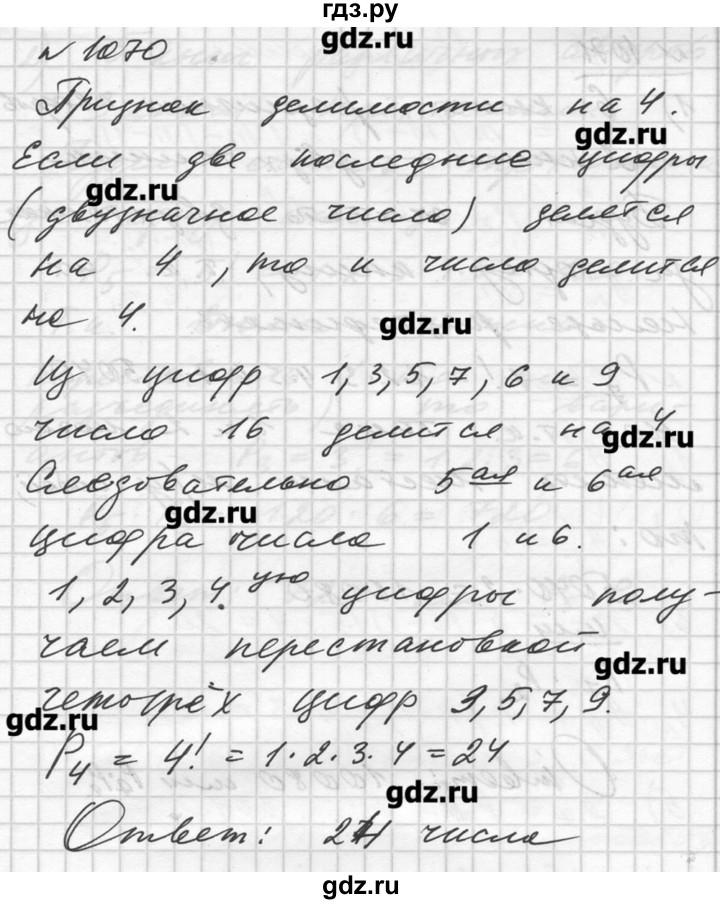 гдз.ру
gdz.ru
№ 1070
Признак делимости на 4.
gdz.ru
Если две последние цифры
gdz.ru
(двузначное число) делятся
на 4, то и число делится
на 4.
gdz.ru
Из цифр 1, 3, 5, 7, 6 и 9
число 16 делится на 4
gdz.ru
Следовательно 5ая и 6ая
gdz.ru
цифра числа 1 и 6.
1, 2, 3, 4.ую цифры полу-
чаем перестановкой
gdz.ru
четырёх цифр 3, 5, 7, 9.
gdz.ru
P4 = 4! = 1·2·3·4 = 24
gdz.ru
Ответ: 24 числа
gdz.ru